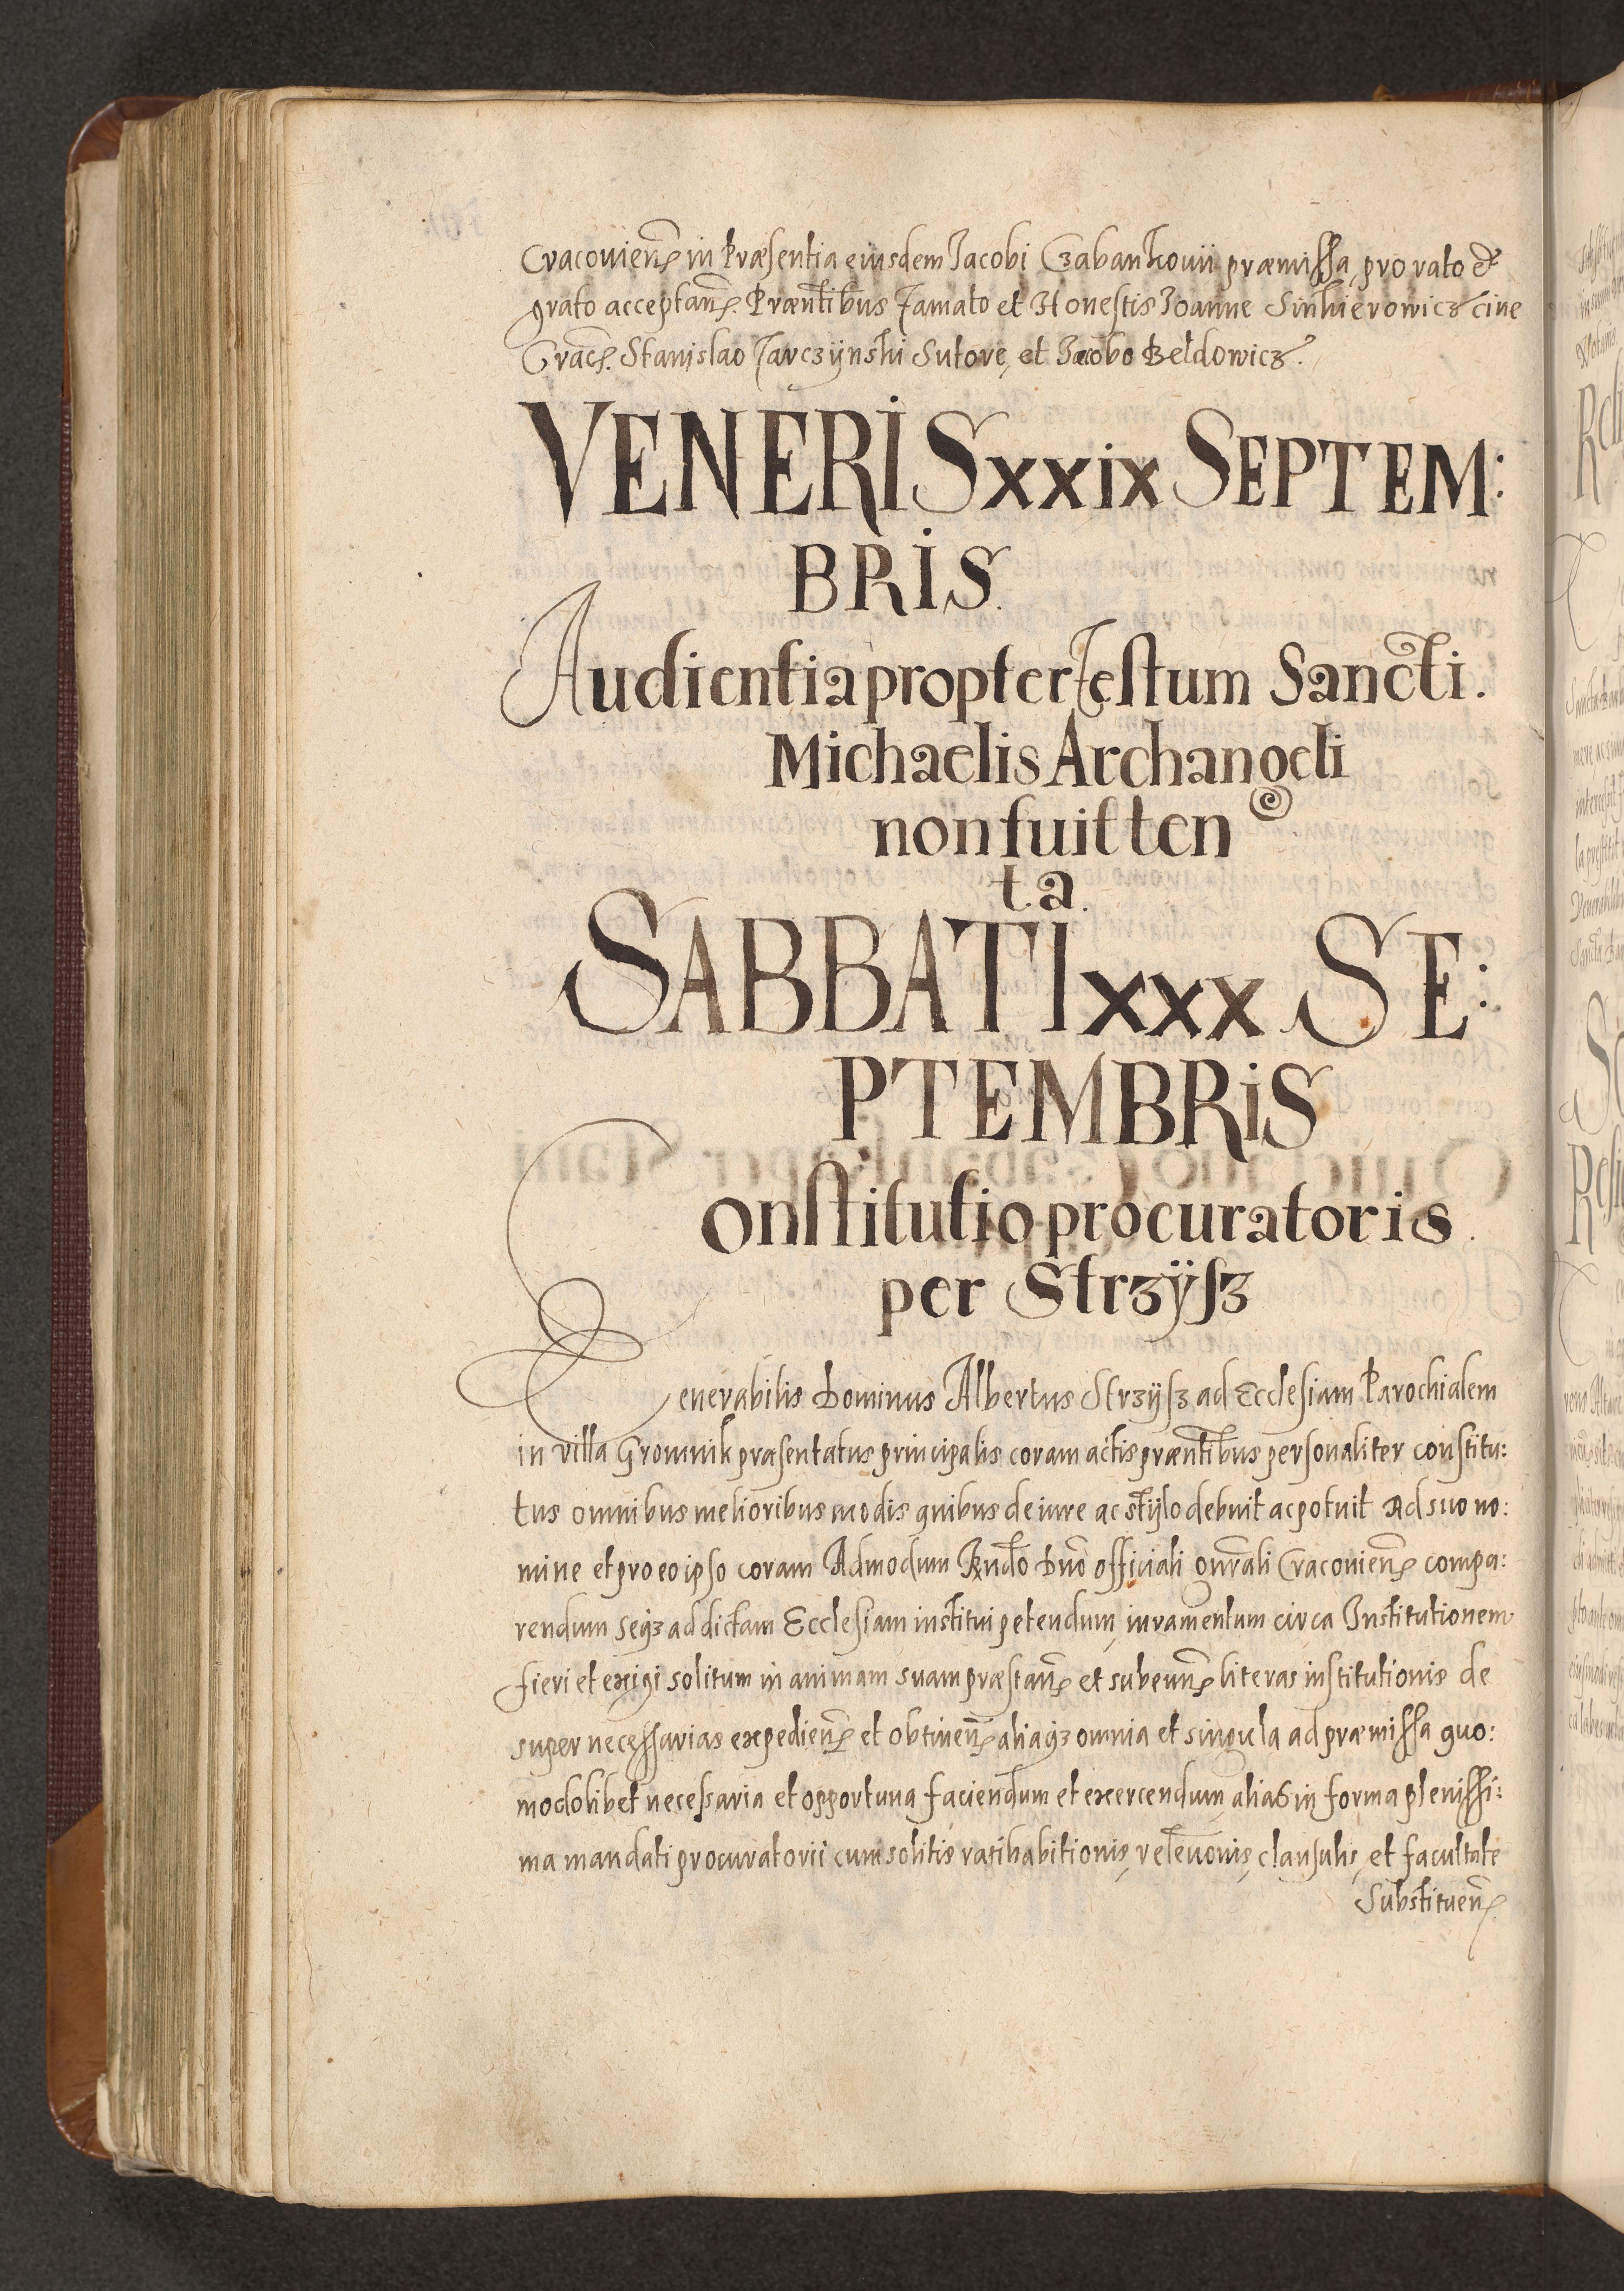 Cracouien̄ in Præsentia eiusdem Jacobi Czabankouii præmissa, pro rato et
grato acceptan̄. Præntibus Famato et Honestis Joanne Sinhierowicz ciue
Crac̄. Stanislao Jarczÿnski Sutore, et Jacobo Beldowicz.
VENERIS xxix SEPTEM:
BRIS.
Audientia propter festum Sancti.
Michaelis Archangeli
non fuit ten
ta.
SABBATI xxx SE:
PTEMBRIS
Constitutio procuratoris.
per Strzÿsz
Venerabilis Dominus Albertus Strzÿsz ad Ecclesiam Parochialem
in villa Gromnik præsentatus principalis coram actis præntibus personaliter constitu:
tus omnibus melioribus modis quibus de iure ac stÿlo debuit ac potuit ad suo no:
mine et pro eo ipso coram Admodum Rndo Dnō officiali gnrali Cracouien̄ compa:
rendum seqz ad dictam Ecclesiam institui petendum, iuramentum circa Institutionem
fieri et exigi solitum in animam suam præstan̄ et subeun̄ literas institutionis de
super necessarias expedien̄ et obtinen̄ aliaqz omnia et singula ad præmissa quo:
modolibet necessaria et opportuna faciendum et exercendum, alias in forma plenissi:
ma mandati procuratorii cum solitis ratihabitionis, releuonis, clausulis, et facultate
Substituen̄